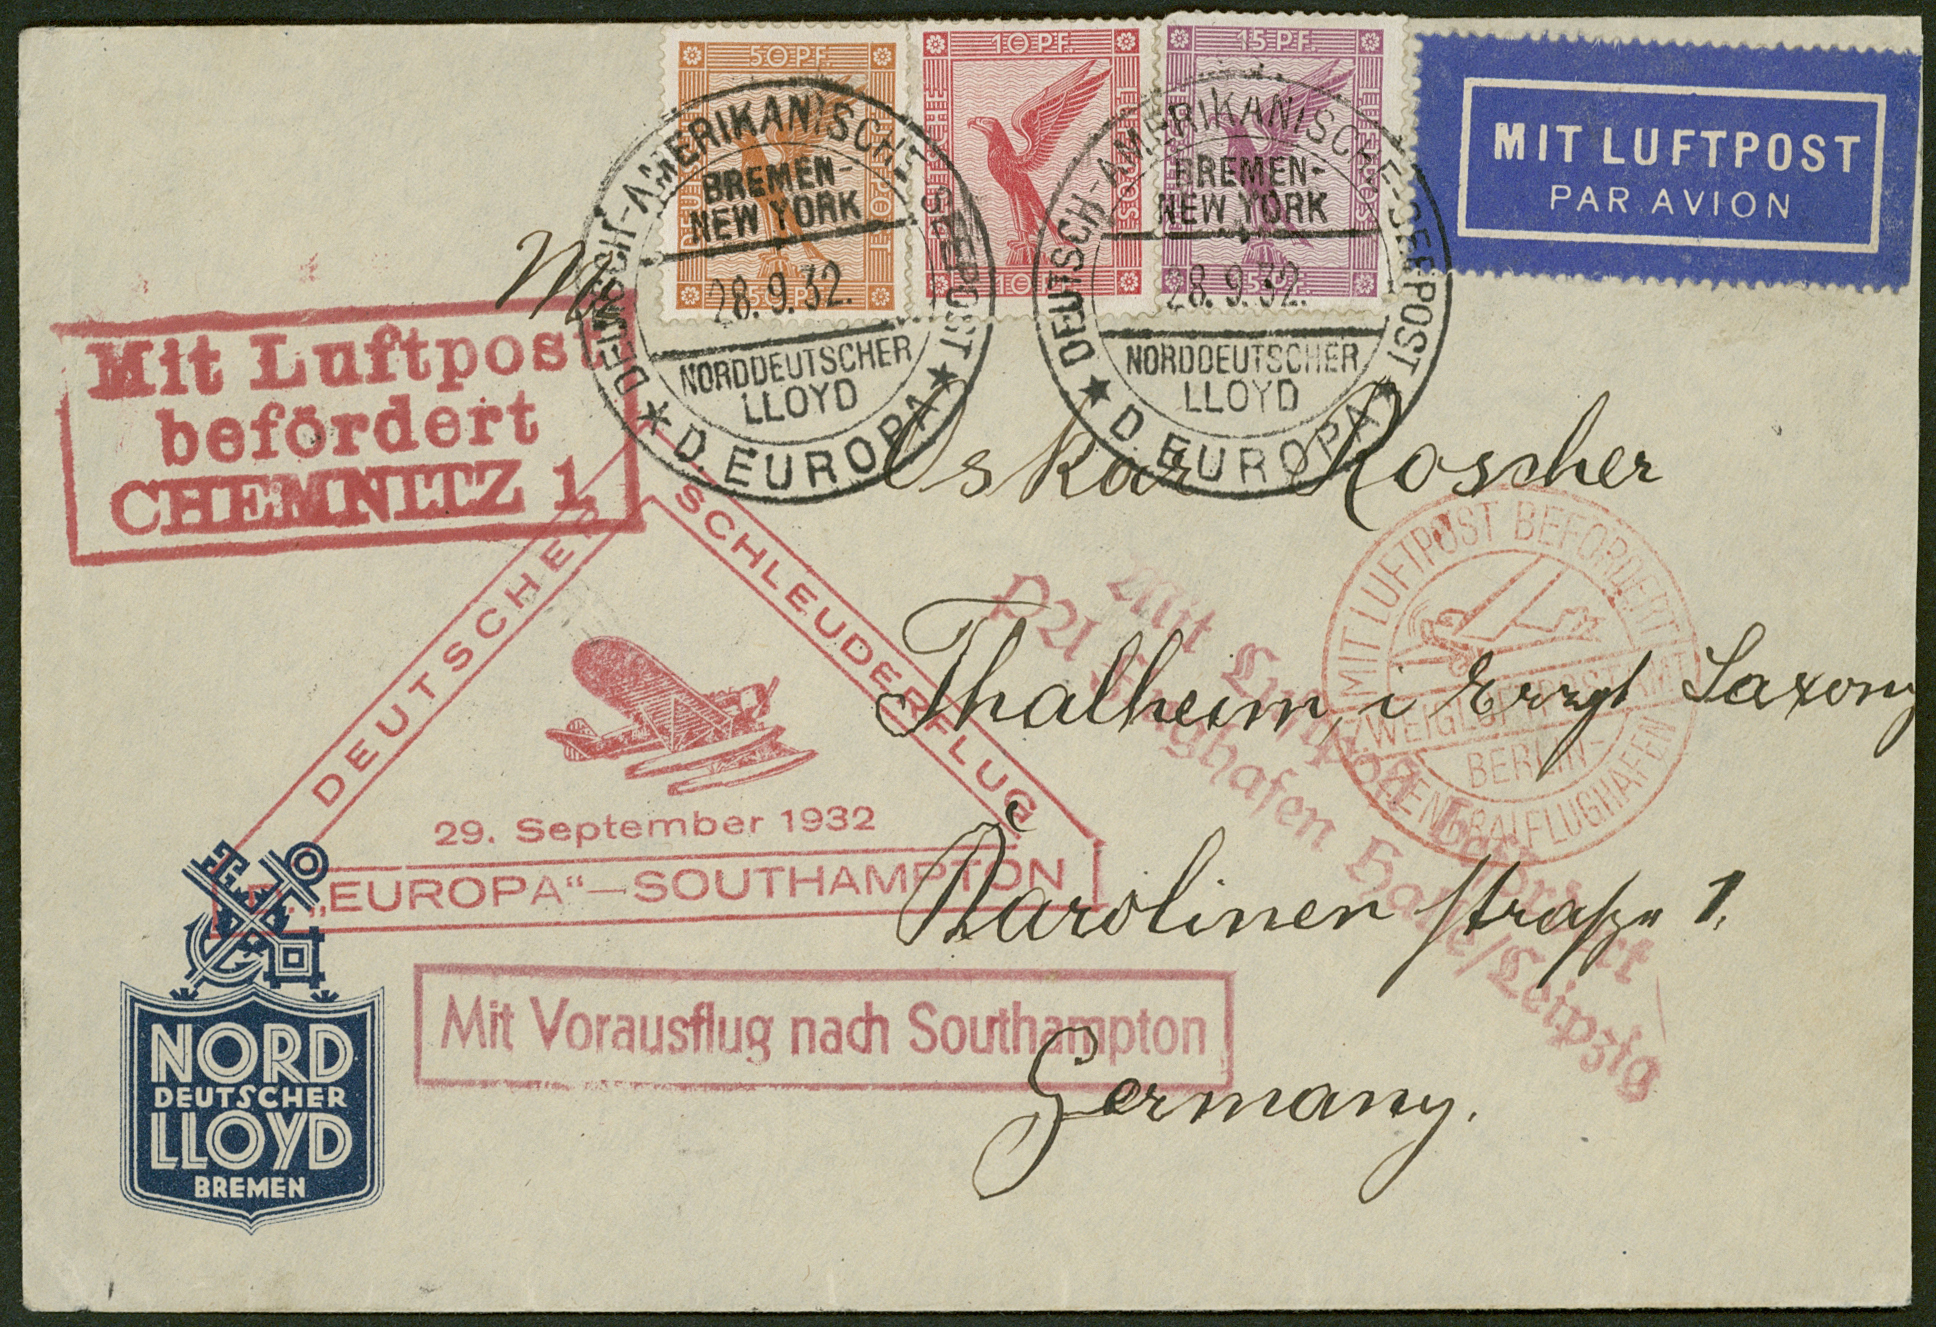 50 PF.
10 PF.
15 PF.
DEUTSCHE
LUFTPOST
10
15 PF.
MIT LUFTPOST
PAR AVION
DEUTSCH-AMERIKANISCHE SEEPOST
BREMEN-
NEW YORK
28.9.32.
NORDDEUTSCHER
LLOYD
★ D. EUROPA ★
DEUTSCH-AMERIKANISCHE-SEEPOST
BREMEN-
NEW YORK
28.9.32.
NORDDEUTSCHER
LLOYD
★ D. EUROPA ★
Mit Luftpost
befördert
CHEMNITZ 1
Oskar Roscher
Thalheim, i Erzgb Saxony
Karolinen straße 1.
Germany.
MIT LUFTPOST BEFÖRDERT
ZWEIGLUFTPOSTAMT
BERLIN-
ZENTRALFLUGHAFEN
Mit Luftpost befördert
PA Flughafen Halle/Leipzig
DEUTSCHER SCHLEUDERFLUG
29. September 1932
D. „EUROPA“—SOUTHAMPTON
Mit Vorausflug nach Southampton
NORD
DEUTSCHER
LLOYD
BREMEN